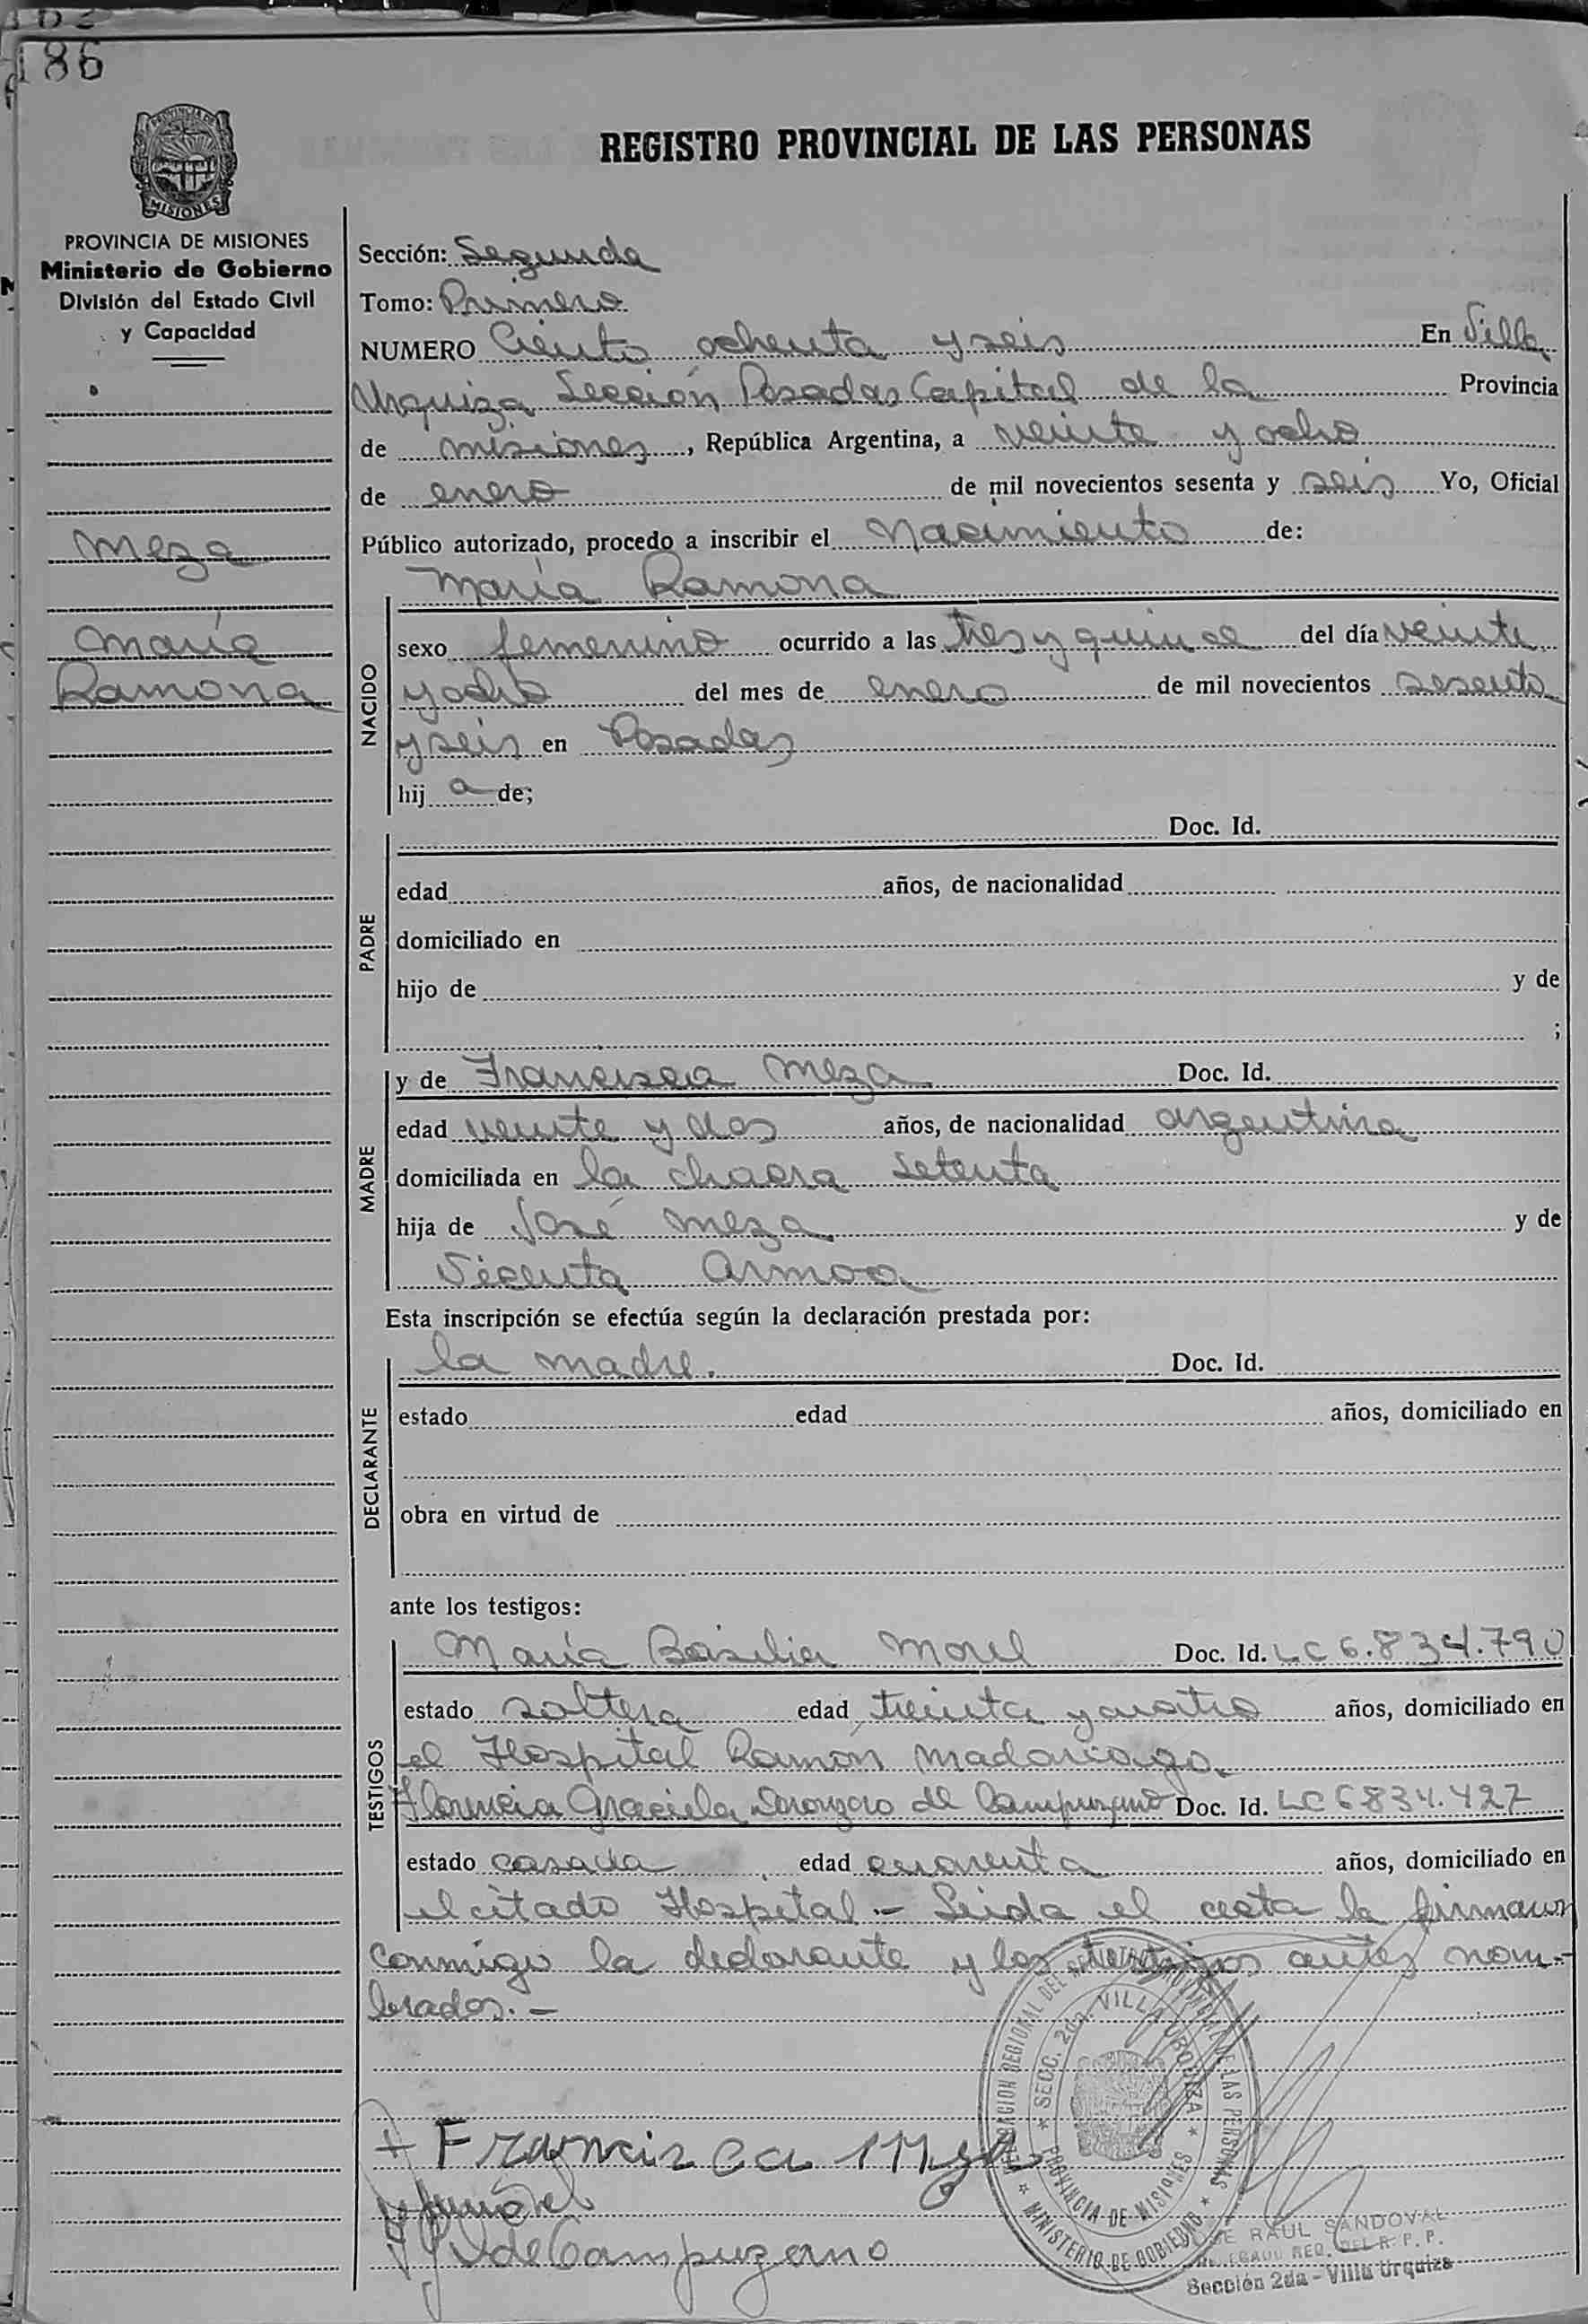 186
MISIONES
REGISTRO PROVINCIAL DE LAS PERSONAS
PROVINCIA DE MISIONES
Ministerio de Gobierno
División del Estado Civil
y Capacidad
Meza
María
Ramona
Sección: Segunda
Tomo: Primero
NUMERO Ciento ochenta y seis En Villa
Urquiza Sección Posadas Capital de la Provincia
de misiones, República Argentina, a veinte y ocho
de enero de mil novecientos sesenta y seis Yo, Oficial
Público autorizado, procedo a inscribir el Nacimiento de:
María Ramona
NACIDO
sexo femenino ocurrido a las tres y quince del día veinte
y ocho del mes de enero de mil novecientos sesenta
y seis en Posadas
hij a de;
PADRE
Doc. Id.
edad años, de nacionalidad
domiciliado en
hijo de y de
;
MADRE
y de Francisca Meza Doc. Id.
edad veinte y dos años, de nacionalidad argentina
domiciliada en la chacra setenta
hija de José Meza y de
Vicenta Armoa
Esta inscripción se efectúa según la declaración prestada por:
DECLARANTE
la madre. Doc. Id.
estado edad años, domiciliado en
obra en virtud de
ante los testigos:
TESTIGOS
María Basilia Morel Doc. Id. LC 6.834.790
estado soltera edad treinta y cuatro años, domiciliado en
el Hospital Ramón Madariaga.
Florencia Graciela de Campuzano Doc. Id. LC 6834.427
estado casada edad cuarenta años, domiciliado en
el citado Hospital.- Leida el acta la firman
conmigo la declarante y los testigos antes nom-
brados.-
DEL REGISTRO PROVINCIAL DE LAS PERSONAS
SECC. 2da. VILLA URQUIZA
PROVINCIA DE MISIONES
MINISTERIO DE GOBIERNO
+ Francisca Meza
de Campuzano
RAUL SANDOVAL
REG. DEL R. P. P.
Sección 2da - Villa Urquiza